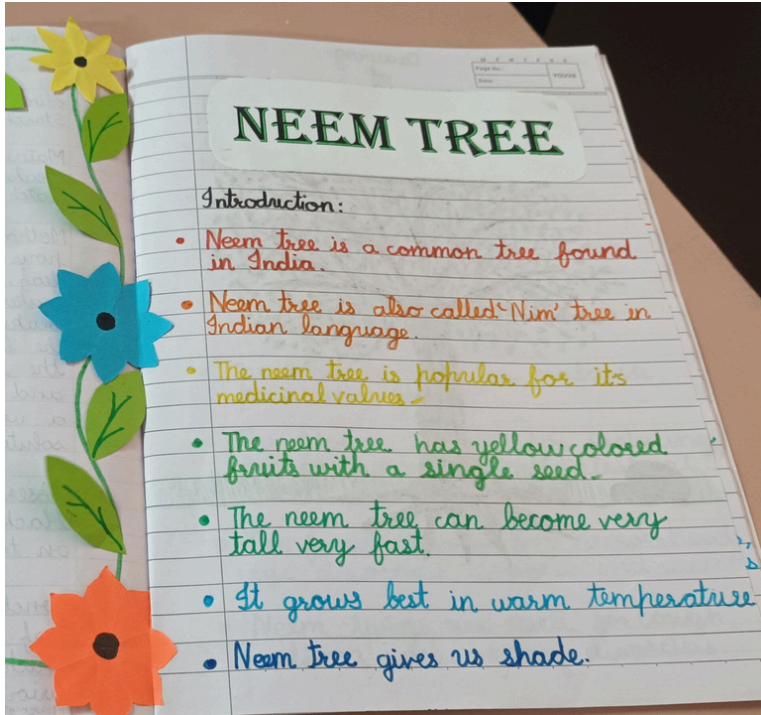 Page No.
Date
YOUVA
NEEM TREE
Introduction:
• Neem tree is a common tree found
in India.
• Neem tree is also called 'Nim' tree in
Indian language.
• The neem tree is popular for its
medicinal values.
• The neem tree has yellow colored
fruits with a single seed.
• The neem tree can become very
tall very fast.
• It grows best in warm temperature
• Neem tree gives us shade.